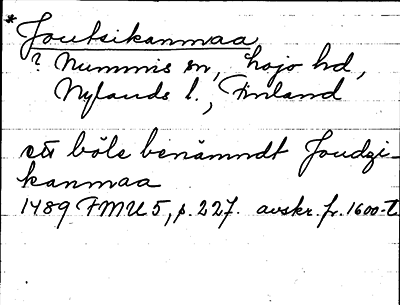 * Joutsikanmaa
? Nummis sn, Lojo hd,
Nylands l., Finland
ett böle benämndt Joudzi-
kanmaa
1489 FMU 5, p. 227. avskr. fr. 1600-t.